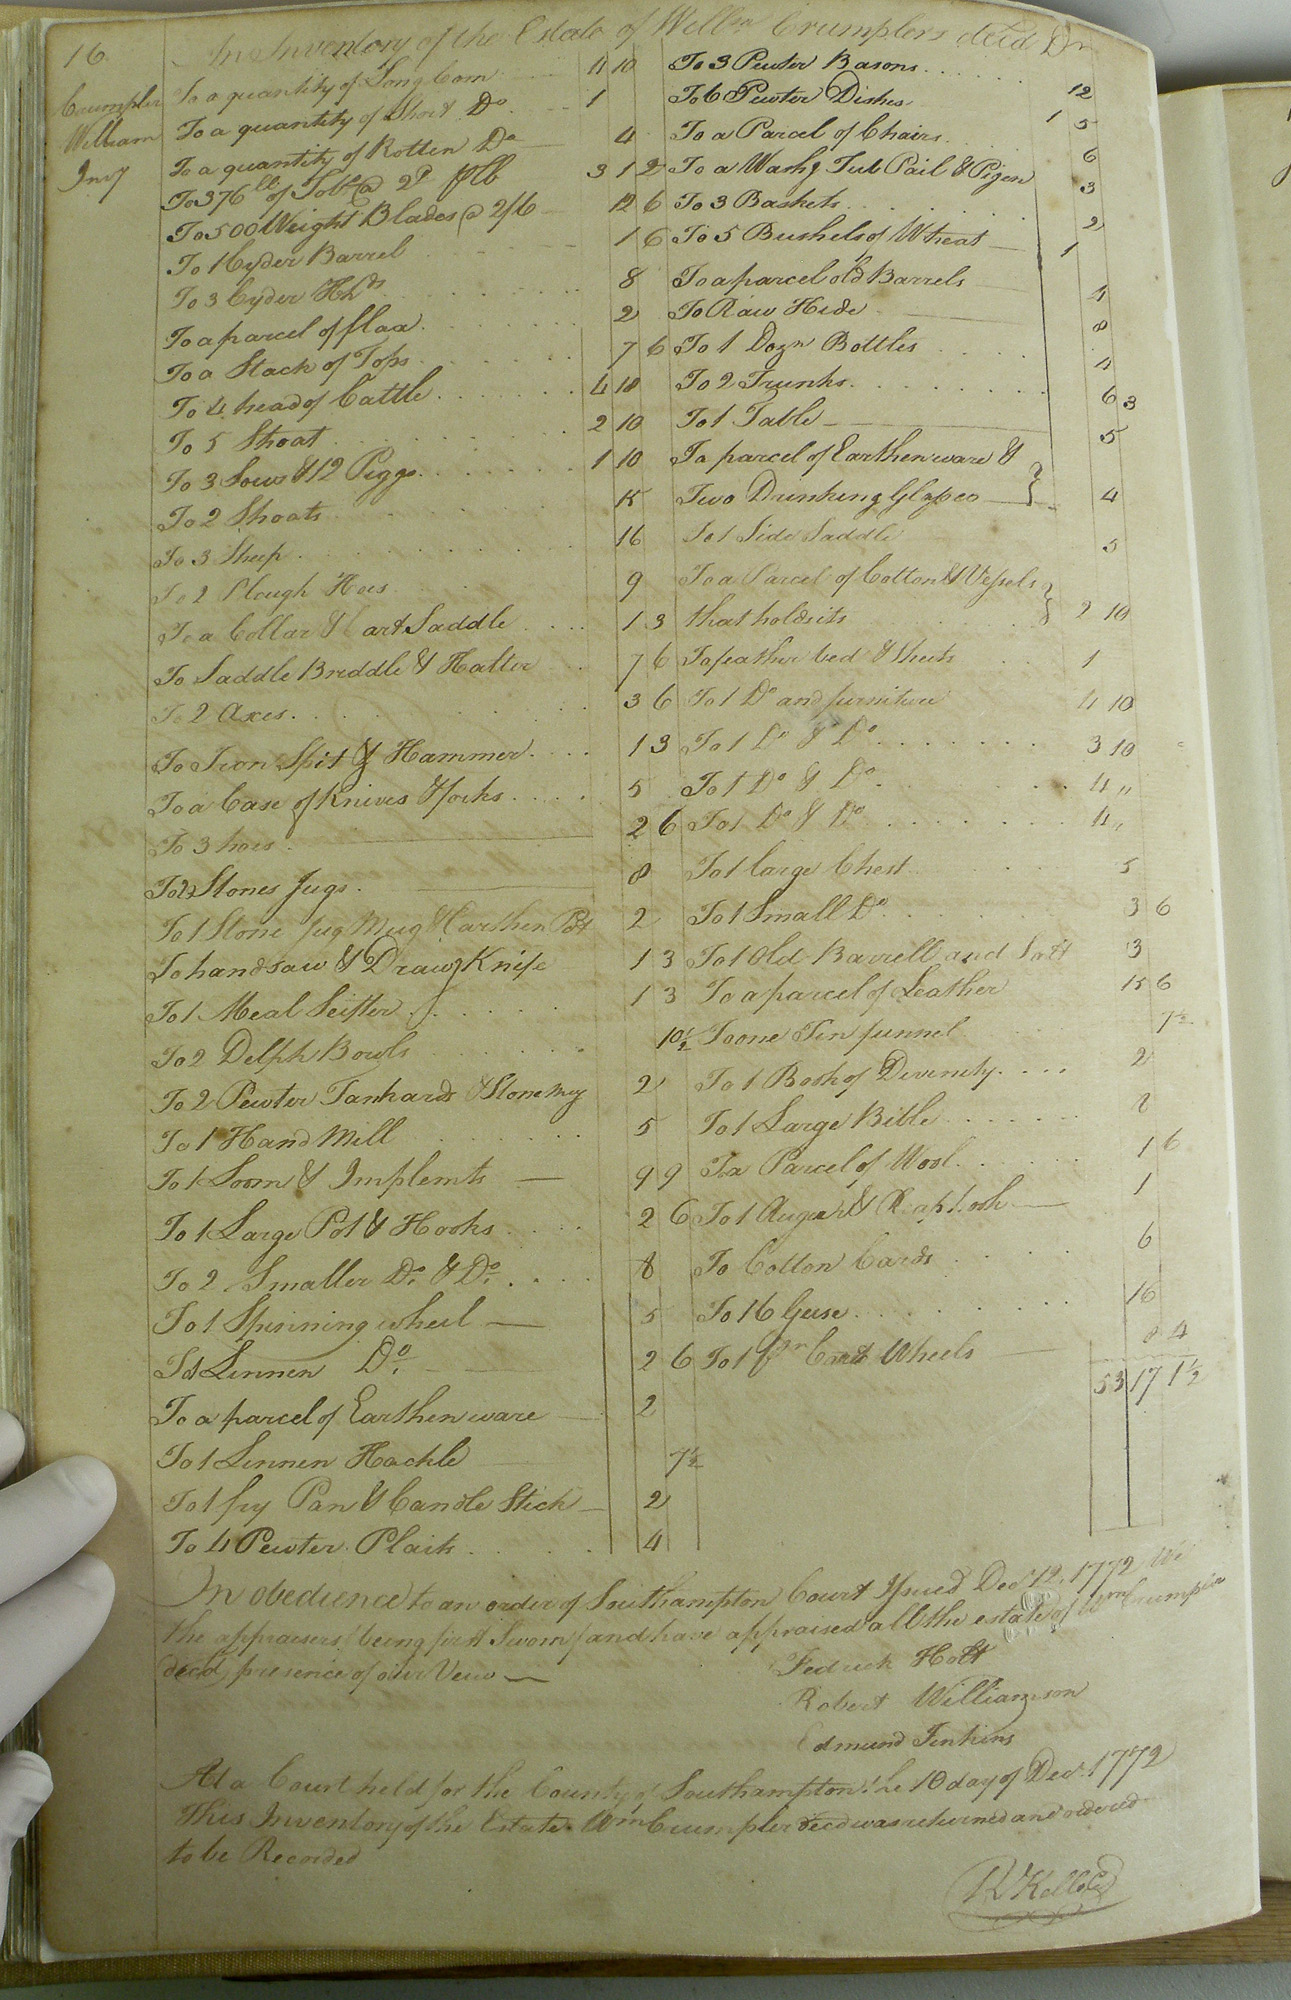 16
Crumpler
William
Invy
An Inventory of the Estate of Willm Crumplers decd Dr
To a quantity of Long Corn 4 10
To a quantity of Short Do 1
To a quantity of Rotten Do 4
To 376 lb of Tobo @ 2d p lb 3 1 2
To 500 Weight Blades @ 2/6 12 6
To 1 Cyder Barrel 1 6
To 3 Cyder Hhds 8
To a parcel of flax 2
To a Stack of Tops 7 6
To 4 head of Cattle 4 10
To 5 Shoat 2 10
To 3 Sows & 12 Piggs 1 10
To 2 Shoats 15
To 3 Sheep 16
To 2 Plough Hoes 9
To a Collar & Cart Saddle 1 3
To Saddle Briddle & Halter 7 6
To 2 Axes 3 6
To Iron Spit & Hammer 1 3
To a Case of Knives & forks 5
To 3 hoes 2 6
To 2 Stones Jugs 8
To 1 Stone Jug Mug & Earthen Pot 2
To handsaw & Drawg Knife 1 3
To 1 Meal Seifter 1 3
To 2 Delph Bowls 10½
To 2 Pewter Tankards & Stone Mug 2
To 1 Hand Mill 5
To 1 Loom & Implemts 9 9
To 1 Large Pot & Hooks 2 6
To 2 Smaller Do. & Do. 8
To 1 Spinning wheel 5
To 1 Linnen Do. 2 6
To a parcel of Earthen ware 2
To 1 Linnen Hackle 7½
To 1 fry Pan & Candle Stick 2
To 4 Pewter Plaits 4
To 3 Pewter Basons 12
To 6 Pewter Dishes 1 5
To a Parcel of Chairs 6
To a Washg Tub Pail & Pigen 3
To 3 Baskets 2
To 5 Bushels of Wheat 1
To a parcel old Barrels 4
To Raw Hide 8
To 1 Dozn Bottles 4
To 2 Trunks 6 3
To 1 Table 5
To parcel of Earthen ware &
Two Drinking Glasses 4
To 1 Side Saddle 5
To a Parcel of Cotton & Vessels
that holds its 2 10
To feather bed & Sheets 1
To 1 Do and furniture 4 10
To 1 Do & Do 3 10
To 1 Do & Do 4 "
To 1 Do & Do 4 "
To 1 large Chest 5
To 1 Small Do 3 6
To 1 Old Barrell and Salt 3
To a parcel of Leather 15 6
To one Tin funnel 7½
To 1 Book of Divinity 2
To 1 Large Bible 2
To a Parcel of Wool 1 6
To 1 Auger & Reap hook 1
To Cotton Cards 6
To 16 Geese 16
To 1 pr Cart Wheels 8 4
53 17 1½
In obedience to an order of Southampton Court Issued Decr 12, 1772 We
the appraisers being first Sworn and have appraised all the estate of Wm Crumpler
decd, presence of our View
Fedrick Holt
Robert Williamson
Edmund Jenkins
At a Court held for the County of Southampton the 10 day of Decr 1772
This Inventory of the Estate Wm Crumpler decd was returned and ordered
to be Recorded
R Kello C